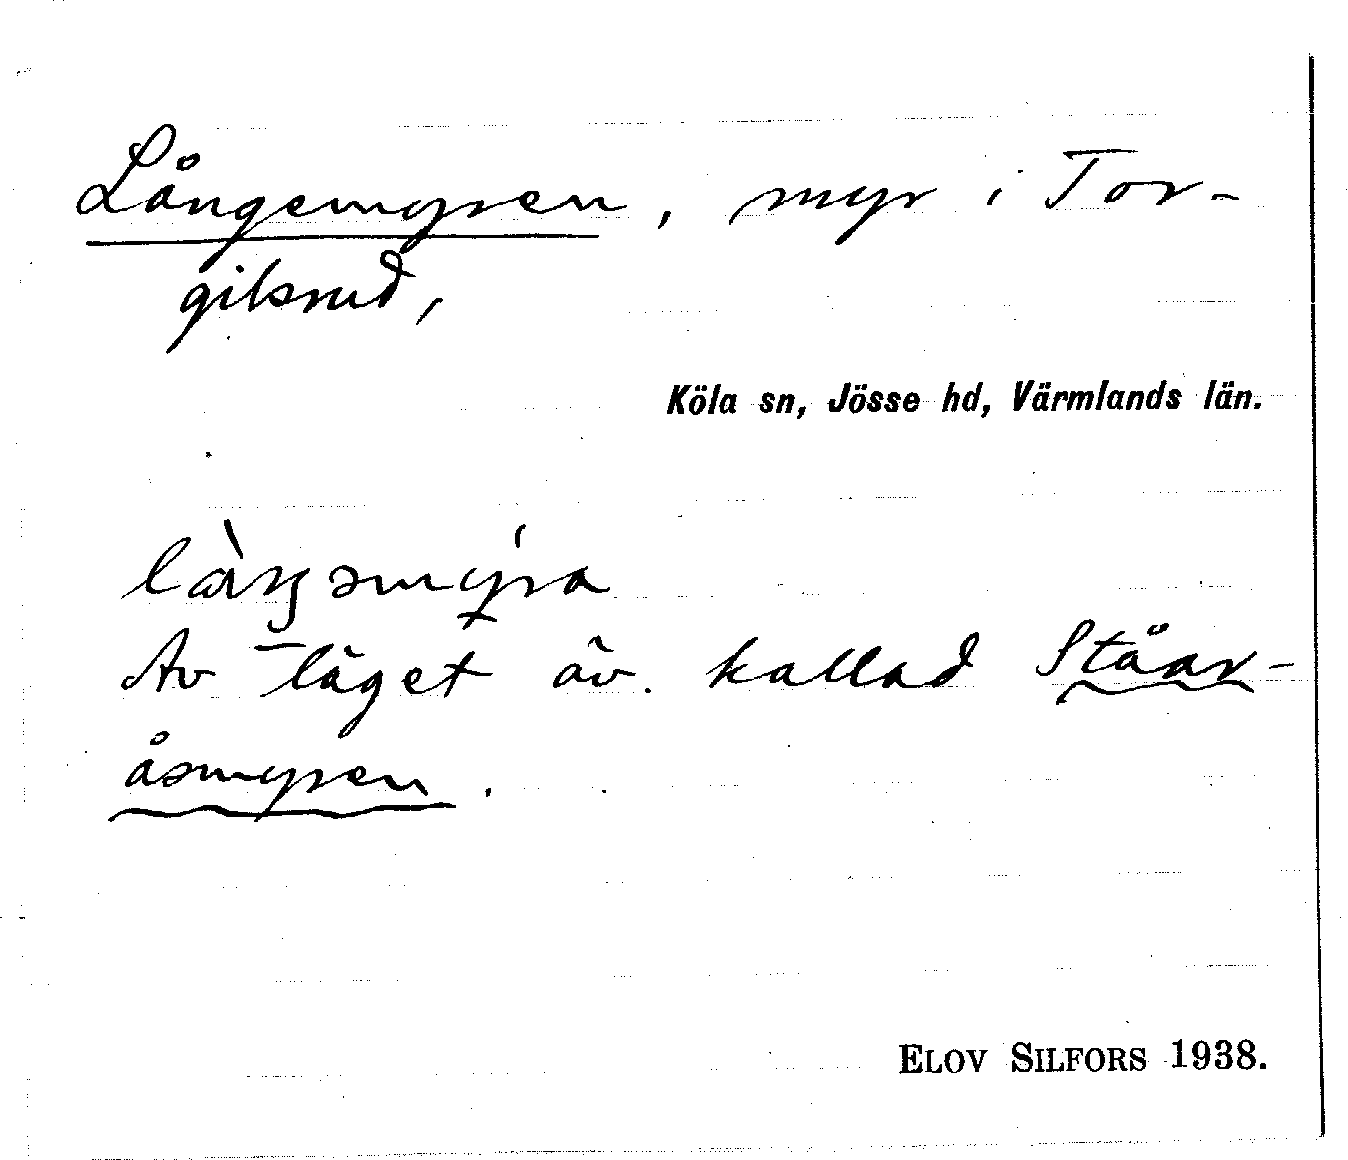 Långemyren, myr i Tor-
gilsrud,
Köla sn, Jösse hd, Värmlands län.
Av läget äv. kallad Ståar-
åsmyren.
ELOV SILFORS 1938.